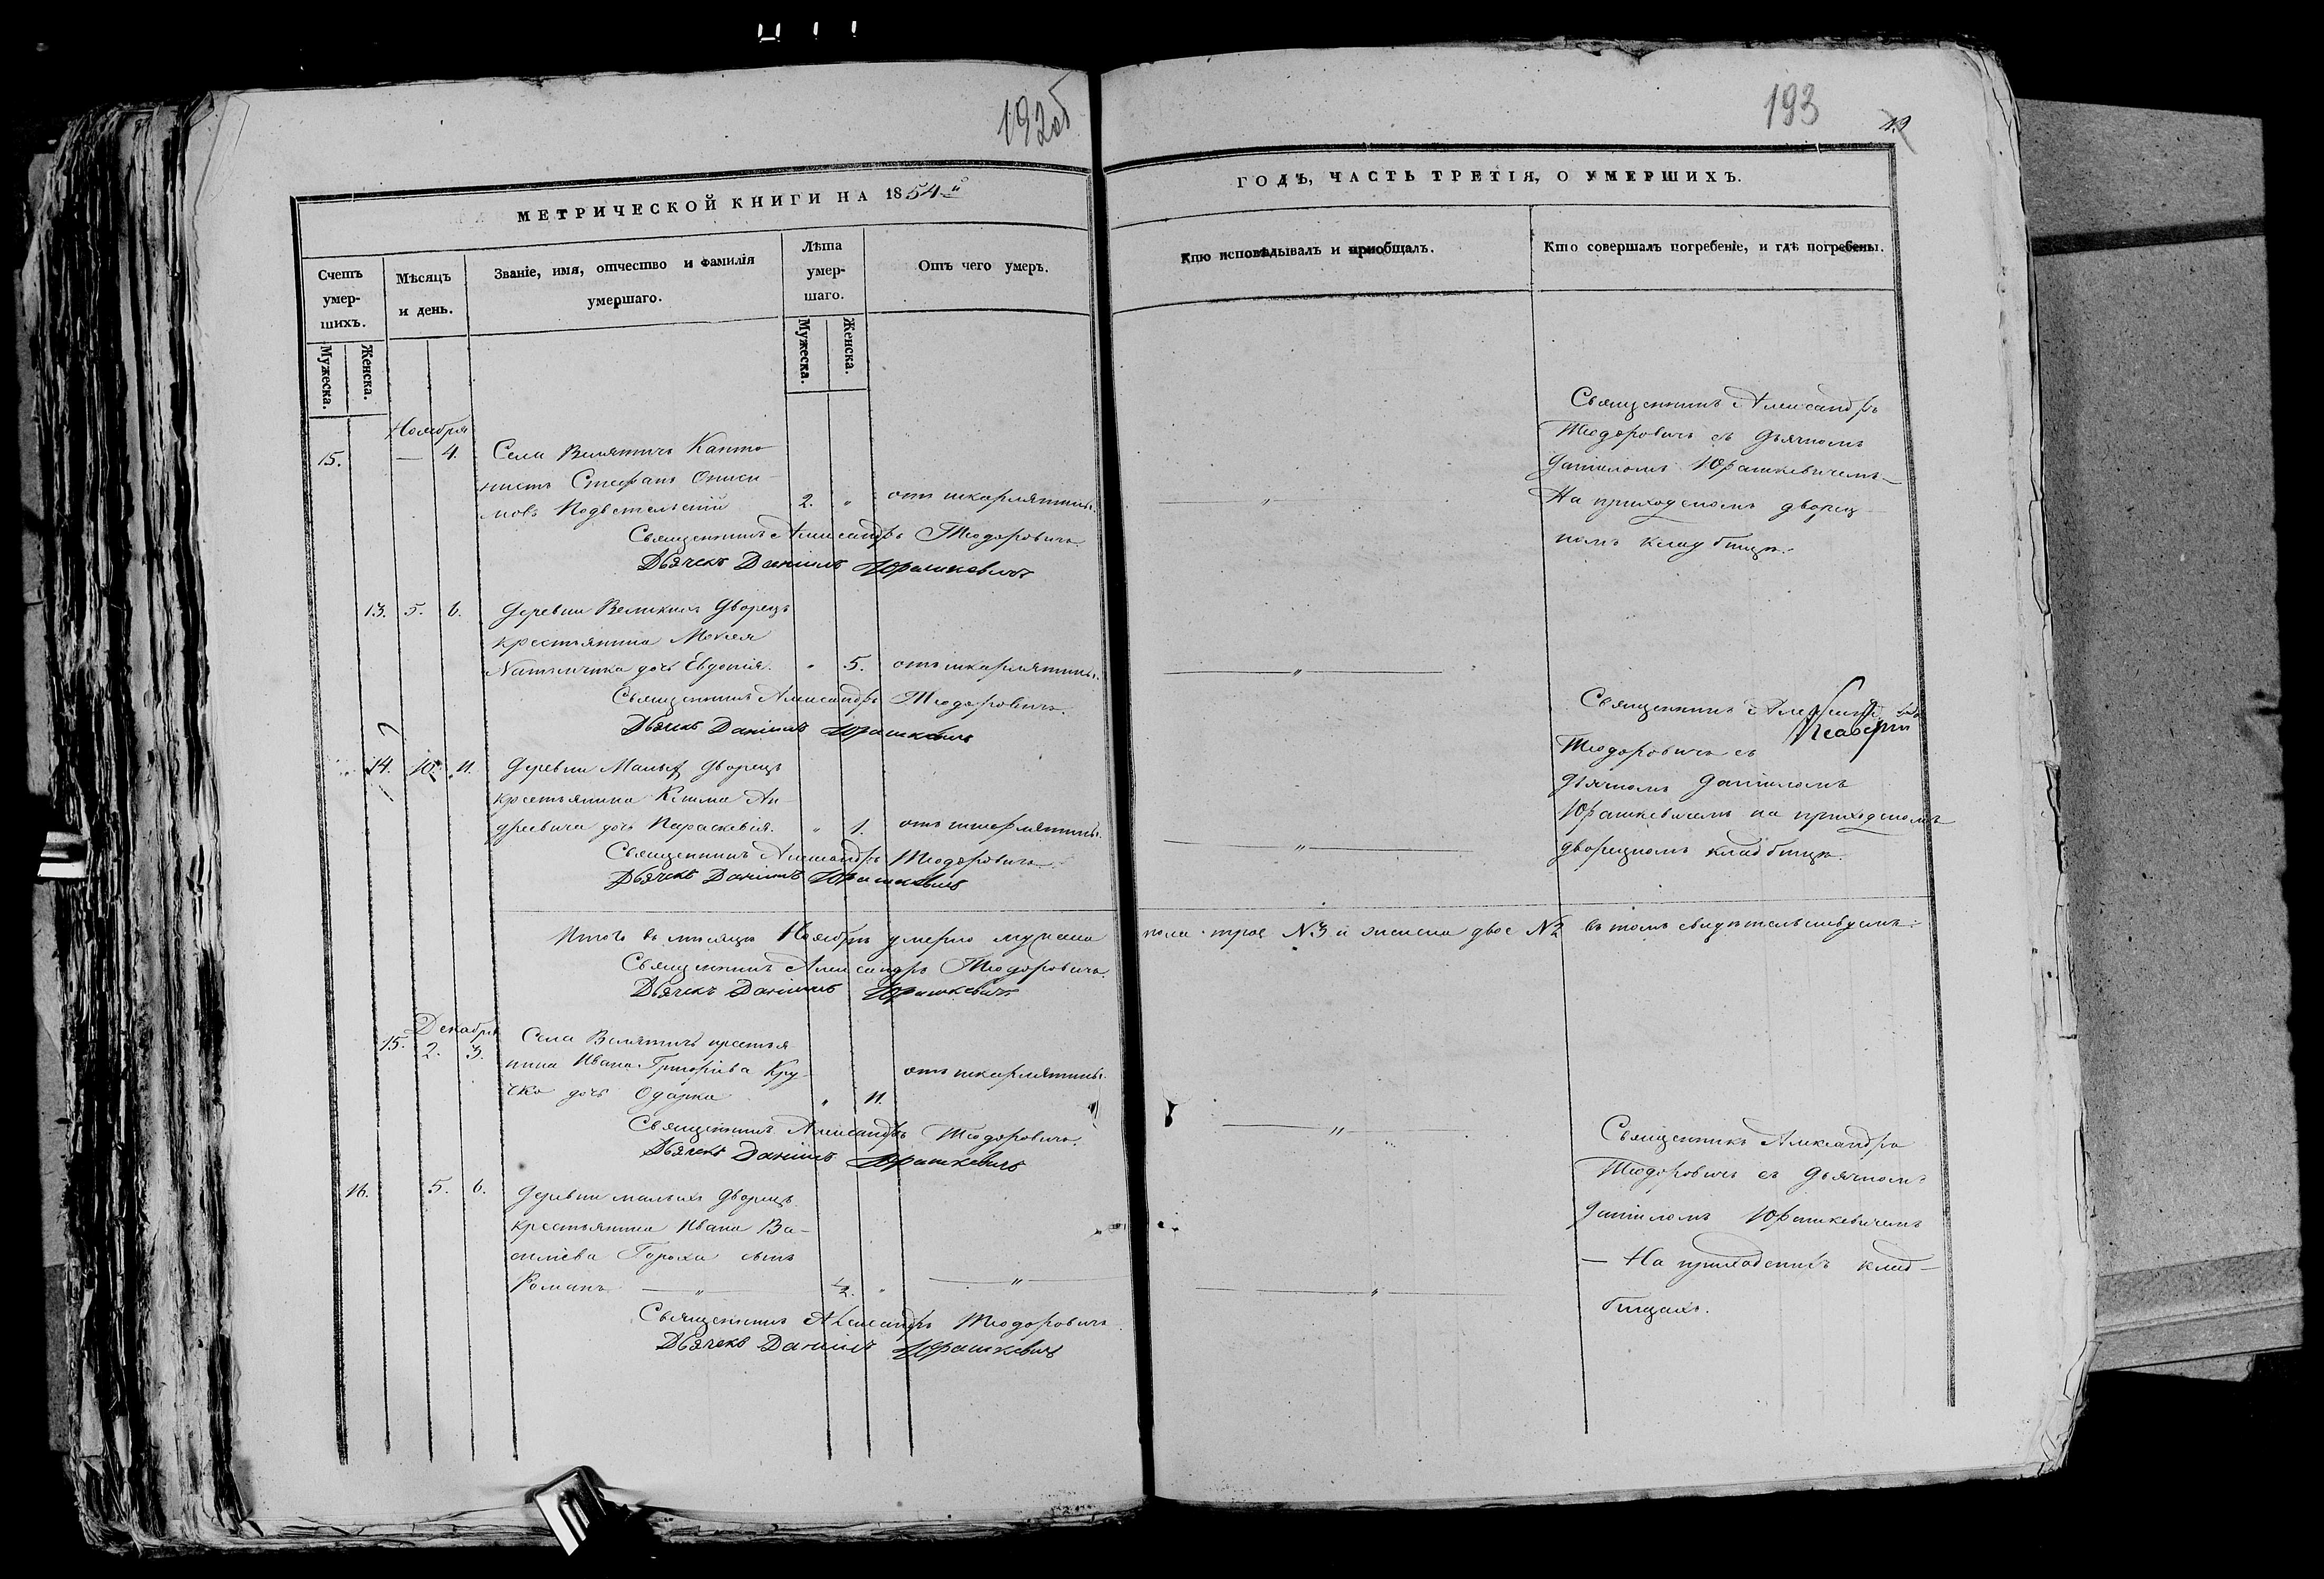 192об
193
49
МЕТРИЧЕСКОЙ КНИГИ НА 1854й
ГОДЪ, ЧАСТЬ ТРЕТІЯ, О УМЕРШИХЪ.
Счетъ умер-шихъ.
Мужеска.
Женска.
Мѣсяцъ и день.
Званіе, имя, отчество и фамилія умершаго.
Лѣта умер-шаго.
Мужеска.
Женска.
Отъ чего умеръ.
Кто исповѣдывалъ и приобщалъ.
Кто совершалъ погребеніе, и гдѣ погребены.
Ноября
15. — 4. Села Велятичъ Канто-
нистъ Стефанъ
2. „ отъ шкарлятины.
Священникъ Александръ Теодоровичъ.
Дьячекъ Даніилъ Юрашкевичъ
Священникъ Александръ
Теодоровичъ съ Дьячкомъ
Даніиломъ Юрашкевичемъ
На приходскомъ дворец-
комъ кладбищѣ.
13. 5. 6. Деревни Великихъ Дворецъ
крестьянина Мокея
дочь Евдокія. „ 5. отъ шкарлятины.
Священникъ Александръ Теодоровичъ.
Дьячекъ Даніилъ Юрашкевичъ
14. 10. 11. Деревни Малыхъ Дворецъ
крестьянина Клима Ан-
дреевича дочь Параскевія. „ 1. отъ шкарлятины.
Священникъ Александръ Теодоровичъ
Дьячекъ Даніилъ Юрашкевичъ
Священникъ
Теодоровичъ съ
Дьячкомъ Даніиломъ
Юрашкевичемъ на приходскомъ
дворецкомъ кладбищѣ.
Итого въ мѣсяцѣ Ноябрѣ умерло мужеска пола трое №3 и женска двое №2 въ томъ свидѣтельствуемъ:
Священникъ Александръ Теодоровичъ.
Дьячекъ Даніилъ Юрашкевичъ
Декабря
15. 2. 3. Села Велятичъ крестья-
нина Ивана Григоріева Кру-
чко дочь Одарка „ 11. отъ шкарлятины.
Священникъ Александръ Теодоровичъ.
Дьячекъ Даніилъ Юрашкевичъ
16. 5. 6. Деревни малыхъ Дворецъ
крестьянина Ивана Ва-
силіева Гороха сынъ
Романъ — „ —
Священникъ Александръ Теодоровичъ
Дьячекъ Даніилъ Юрашкевичъ
Священникъ Александръ
Теодоровичъ съ Дьячкомъ
Даніиломъ Юрашкевичемъ
— На приходскихъ клад-
бищахъ.